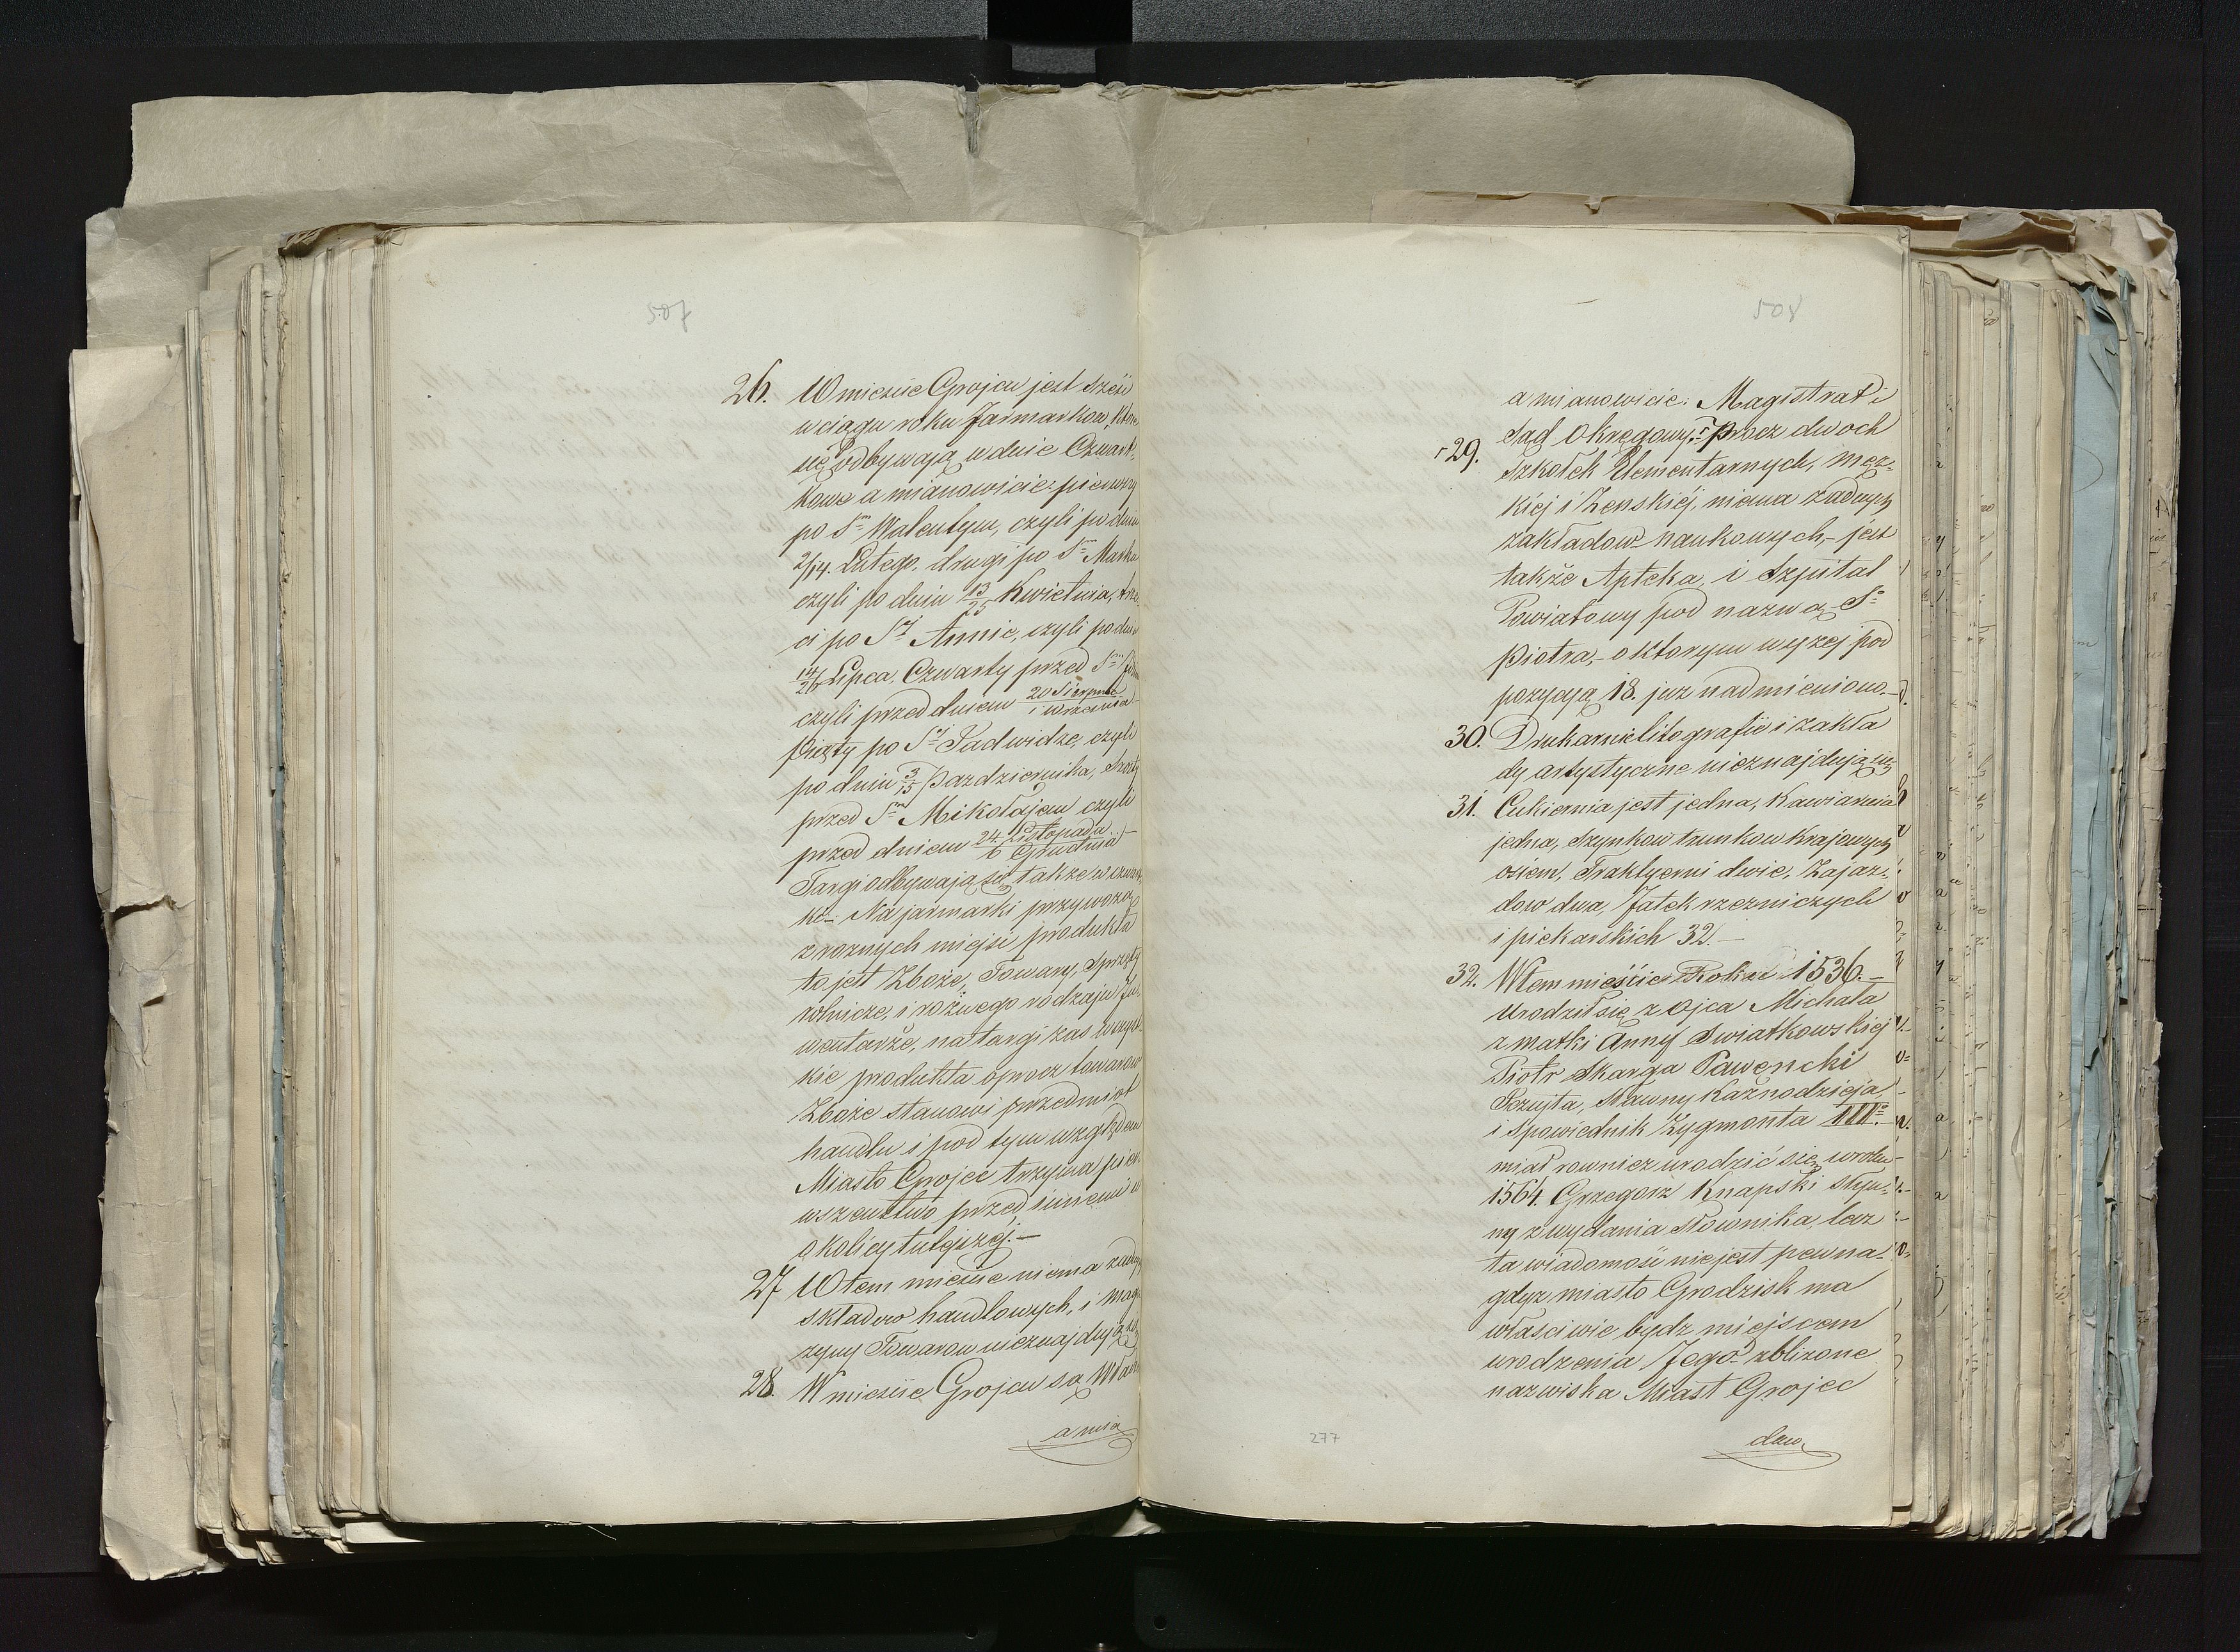 507
26. W mieście Grojcu jest sześć
w ciągu roku Jarmarkow, które
się odbywają w dnie Czwart-
kowe a mianowicie: pierwszy
po Sm Walentym, czyli po dniu
2/14. Lutego, drugi po Sm Marku
czyli po dniu 13/25 Kwietnia, trze
ci po Stej Annie, czyli po dniu
14/26 Lipca, Czwarty przed Sm
czyli przed dniem 20 Sierpnia / 1 Września
Piąty po Sej Jadwidze, czyli
po dniu 3/15 Pazdziernika, Szosty
przed Sm Mikołajem czyli
przed dniem 24 Listopada / 6 Grudnia –
Targi odbywają się także w czwart
ki – Na jarmarki przywożą
z roznych miejsc produkta
to jest Zboże, Towary, Sprzęty
rolnicze, i rożnego rodzaju In-
wentarże, na targi zas wszyst-
kie produkta oprocz towarow
Zboże stanowi przedmiot
handlu i pod tym względem
Miasto Grojec trzyma pier-
wszeństwo przed innemi w
okolicy tutejszej. –
27 W tem mieście niema żadnych
składow handlowych, i maga
zyny Towarow nieznajdują się
28. W mieście Grojcu są Władze
a mia
508
a mianowicie: Magistrat i
Sąd Okręgowy.
29. Procz dwoch
szkołek Elementarnych, męz-
kiej i Żenskiej, niema żadnych
zakładow naukowych, – jest
także Apteka, i Szpital
Powiatowy pod nazwą So
Piotra, – o ktorym wyzej pod
pozycyą 18. juz nadmieniono. –
30. Drukarnie litografie i zakła
dy artystyczne nieznajdują się
31. Cukiernia jest jedna, Kawiarnia
jedna, Szynkow trunkow krajowych
osiem, Traktyerni dwie, Zajaz-
dow dwa, Jatek rzezniczych
i piekarskich 32. –
32. W tem mieście Roku 1536. –
urodził się z ojca Michała
z matki Anny Swiatkowskiej
Piotr Skarga Pawencki
Jezuita, Sławny Kaznodzieja,
i Spowiednik Zygmonta IIIo –
miał rownież urodzić się w roku
1564. Grzegorz Knapski słyn-
ny z wydania Słownika, lecz
ta wiadomość niejest pewna
gdyz miasto Grodzisk ma
właściwie bydz miejscem
urodzenia Jego zblizone
nazwiska Miast Grojec
daw
277